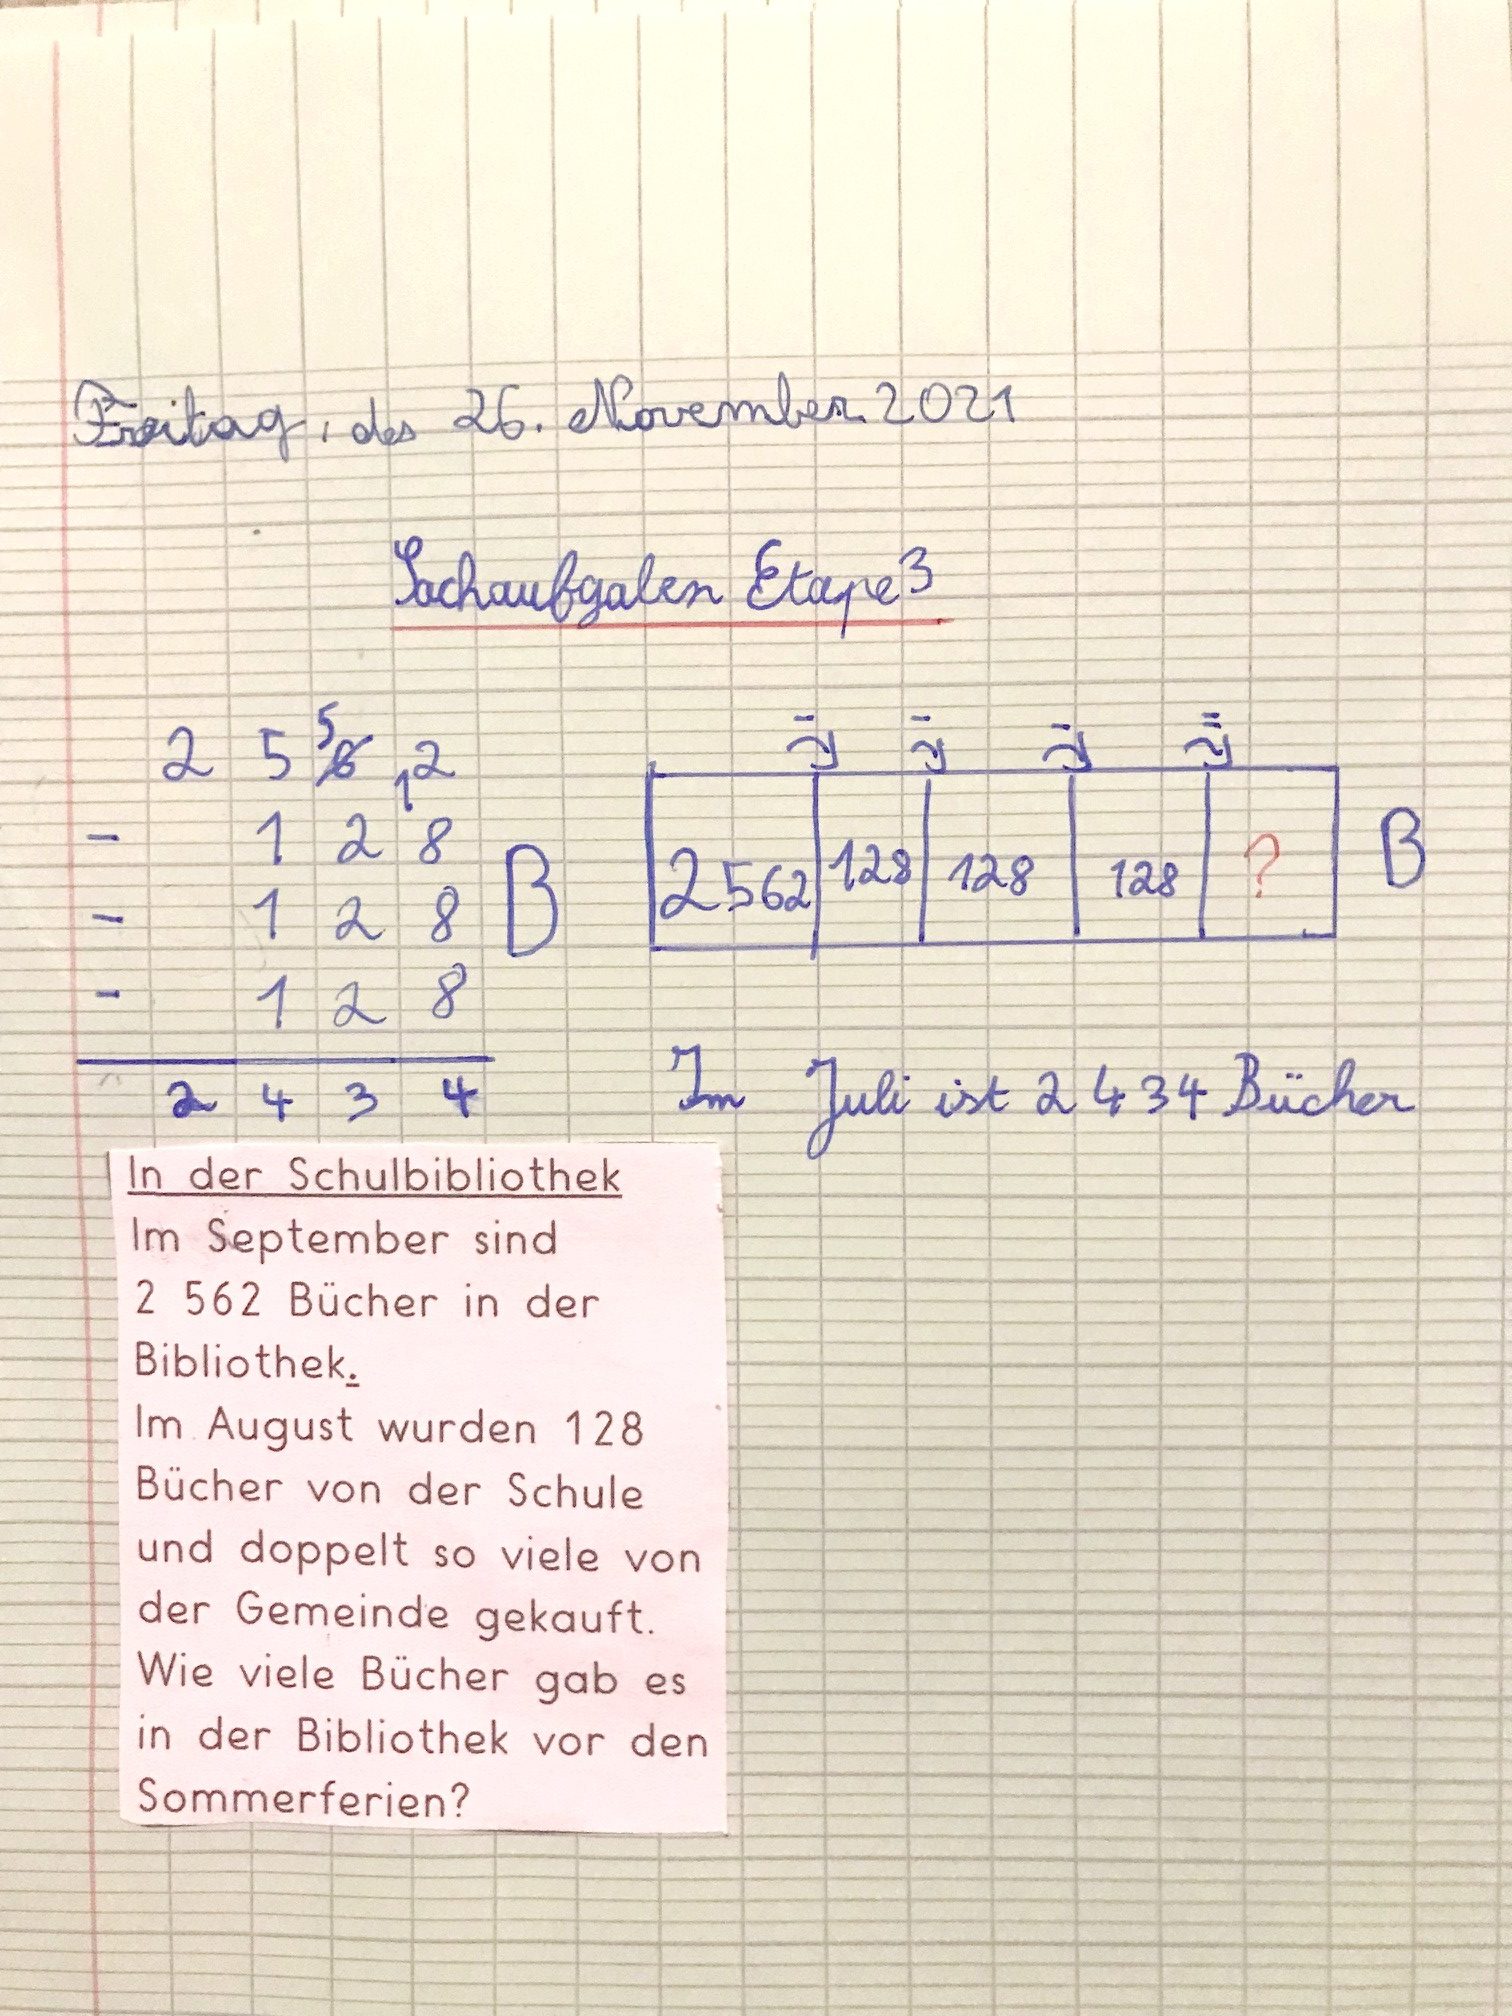 Freitag, des 26. November 2021
Sachaufgaben Etape 3
5
2 5 6 12
- 1 2 8
- 1 2 8 B
- 1 2 8
2 4 3 4
- - - =
2562 128 128 128 ? B
Im Juli ist 2 434 Bücher
In der Schulbibliothek
Im September sind
2 562 Bücher in der
Bibliothek.
Im August wurden 128
Bücher von der Schule
und doppelt so viele von
der Gemeinde gekauft.
Wie viele Bücher gab es
in der Bibliothek vor den
Sommerferien?